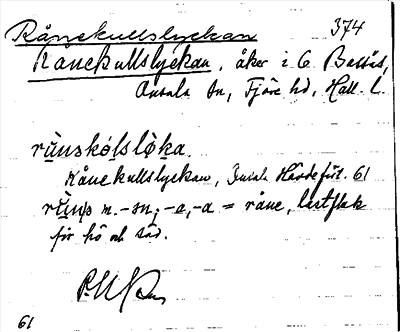 Rånekullslyckan 374
Rånekullslyckan, åker i 6 Bassås,
Onsala sn, Fjäre hd, Hall. l.
rùnskólsløka.
Rånekullslyckan, Inich Härdefört. 61
rùn m. -sn; -a, -a = råne, lastflak
för hö och säd.
61